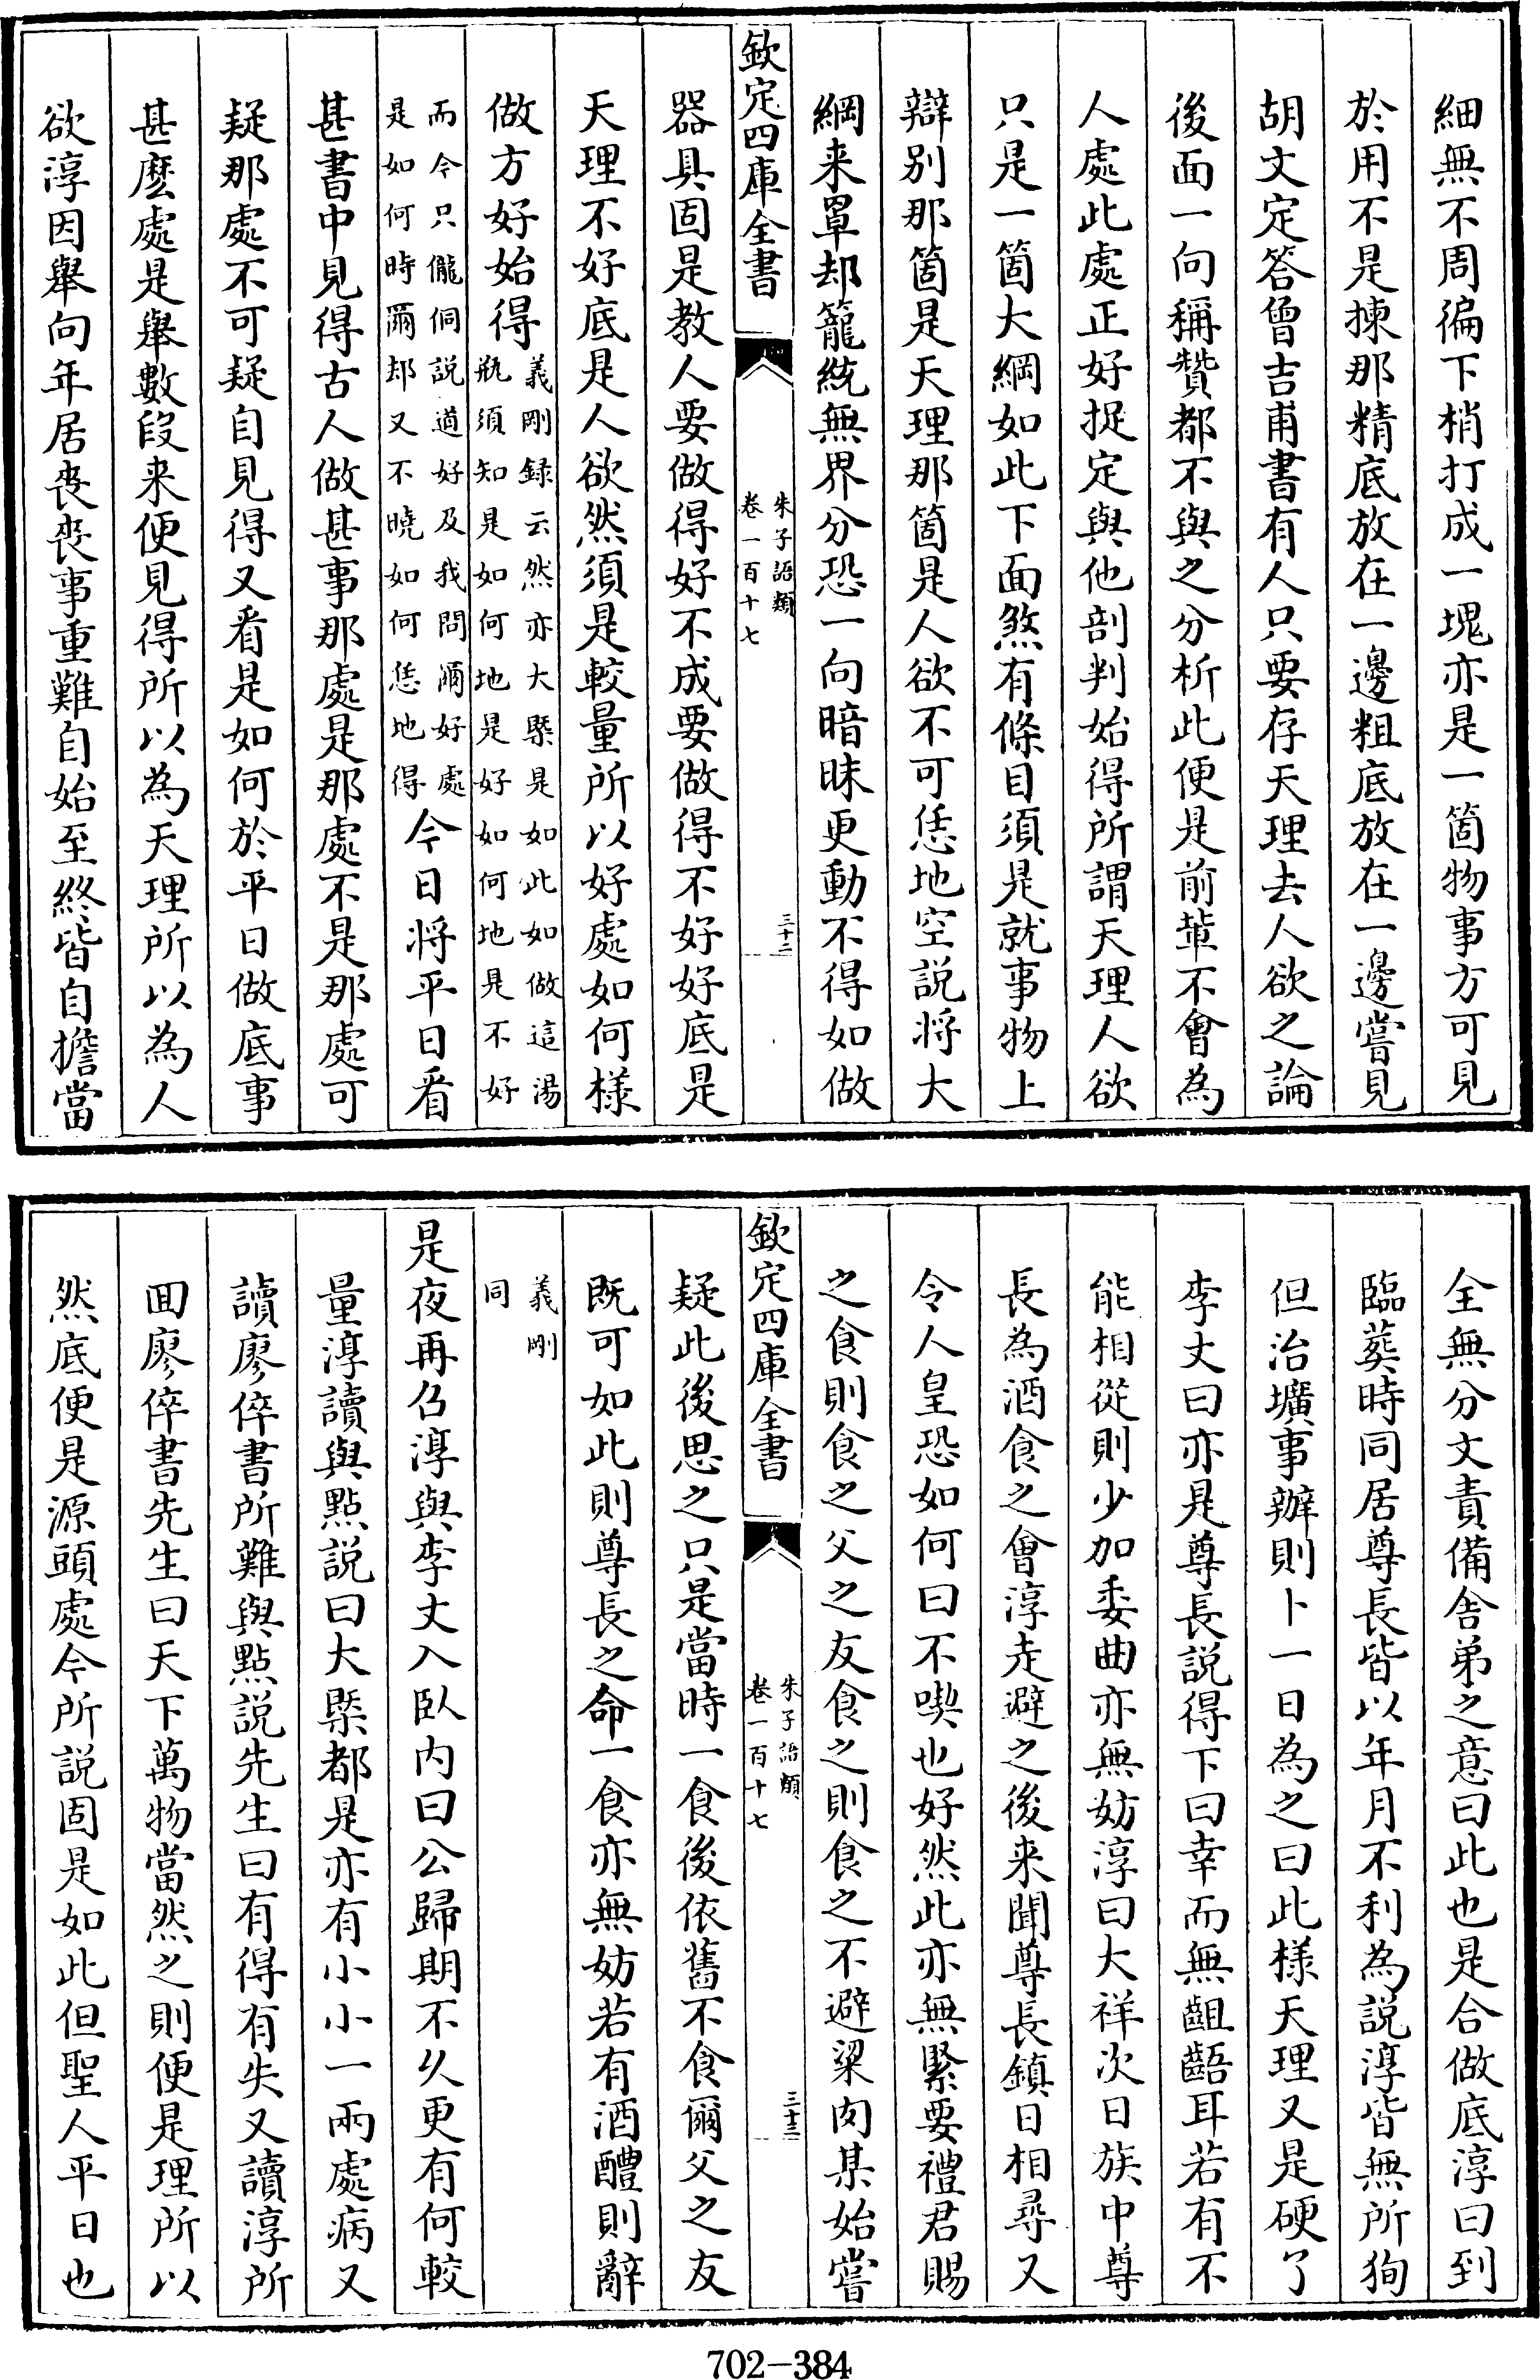 細無不周徧下梢打成一塊亦是一箇物事方可見
於用不是揀那精底放在一邊粗底放在一邊嘗見
胡文定答曾吉甫書有人只要存天理去人欲之論
後面一向稱贊都不與之分析此便是前輩不會為
人處此處正好捉定與他剖判始得所謂天理人欲
只是一箇大綱如此下面煞有條目須是就事物上
辯别那箇是天理那箇是人欲不可恁地空説將大
綱来罩却籠統無界分恐一向暗昧更動不得如做
欽定四庫全書
朱子語類
卷一百十七
三十二
器具固是教人要做得好不成要做得不好好底是
天理不好底是人欲然須是較量所以好處如何樣
做方好始得義剛録云然亦大槩是如此如做這湯
瓶須知是如何地是好如何地是不好
而今只儱侗説道好及我問爾好處
是如何時爾却又不曉如何恁地得今日将平日看
甚書中見得古人做甚事那處是那處不是那處可
疑那處不可疑自見得又看是如何於平日做底事
甚麽處是舉數段来便見得所以為天理所以為人
欲淳因舉向年居喪喪事重難自始至終皆自擔當
全無分文責備舎弟之意曰此也是合做底淳曰到
臨葬時同居尊長皆以年月不利為説淳皆無所狥
但治壙事辦則卜一日為之曰此樣天理又是硬了
李丈曰亦是尊長説得下曰幸而無齟齬耳若有不
能相從則少加委曲亦無妨淳曰大祥次日族中尊
長為酒食之會淳走避之後来聞尊長鎮日相尋又
令人皇恐如何曰不喫也好然此亦無緊要禮君賜
之食則食之父之友食之則食之不避粱肉某始嘗
欽定四庫全書
朱子語類
卷一百十七
三十三
疑此後思之只是當時一食後依舊不食爾父之友
既可如此則尊長之命一食亦無妨若有酒醴則辭
義剛
同
是夜再召淳與李丈入卧内曰公歸期不久更有何較
量淳讀與點説曰大槩都是亦有小小一兩處病又
讀廖倅書所難與點説先生曰有得有失又讀淳所
囬廖倅書先生曰天下萬物當然之則便是理所以
然底便是源頭處今所説固是如此但聖人平日也
702-384